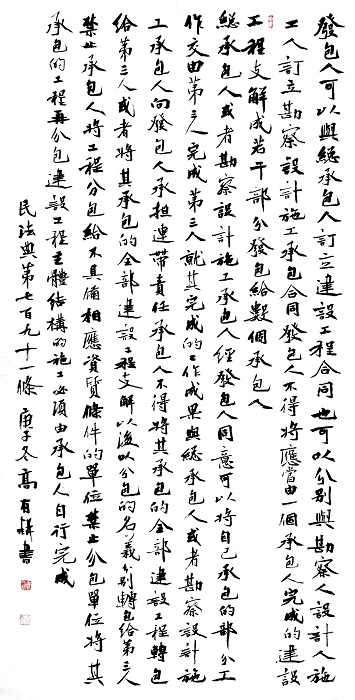 發包人可以與總承包人訂立建設工程合同也可以分別與勘察人設計人施
工人訂立勘察設計施工承包合同發包人不得將應當由一個承包人完成的建設
工程支解成若干部分發包給數個承包人
總承包人或者勘察設計施工承包人經發包人同意可以將自己承包的部分工
作交由第三人完成第三人就其完成的工作成果與總承包人或者勘察設計施
工承包人向發包人承担連帶責任承包人不得將其承包的全部建設工程轉包
給第三人或者將其承包的全部建設工程支解以後以分包的名義分別轉包給第三人
禁止承包人將工程分包給不具備相應資質條件的單位禁止分包單位將其
承包的工程再分包建設工程主體結構的施工必須由承包人自行完成
民法典第七百九十一條 庚子冬高有祥書